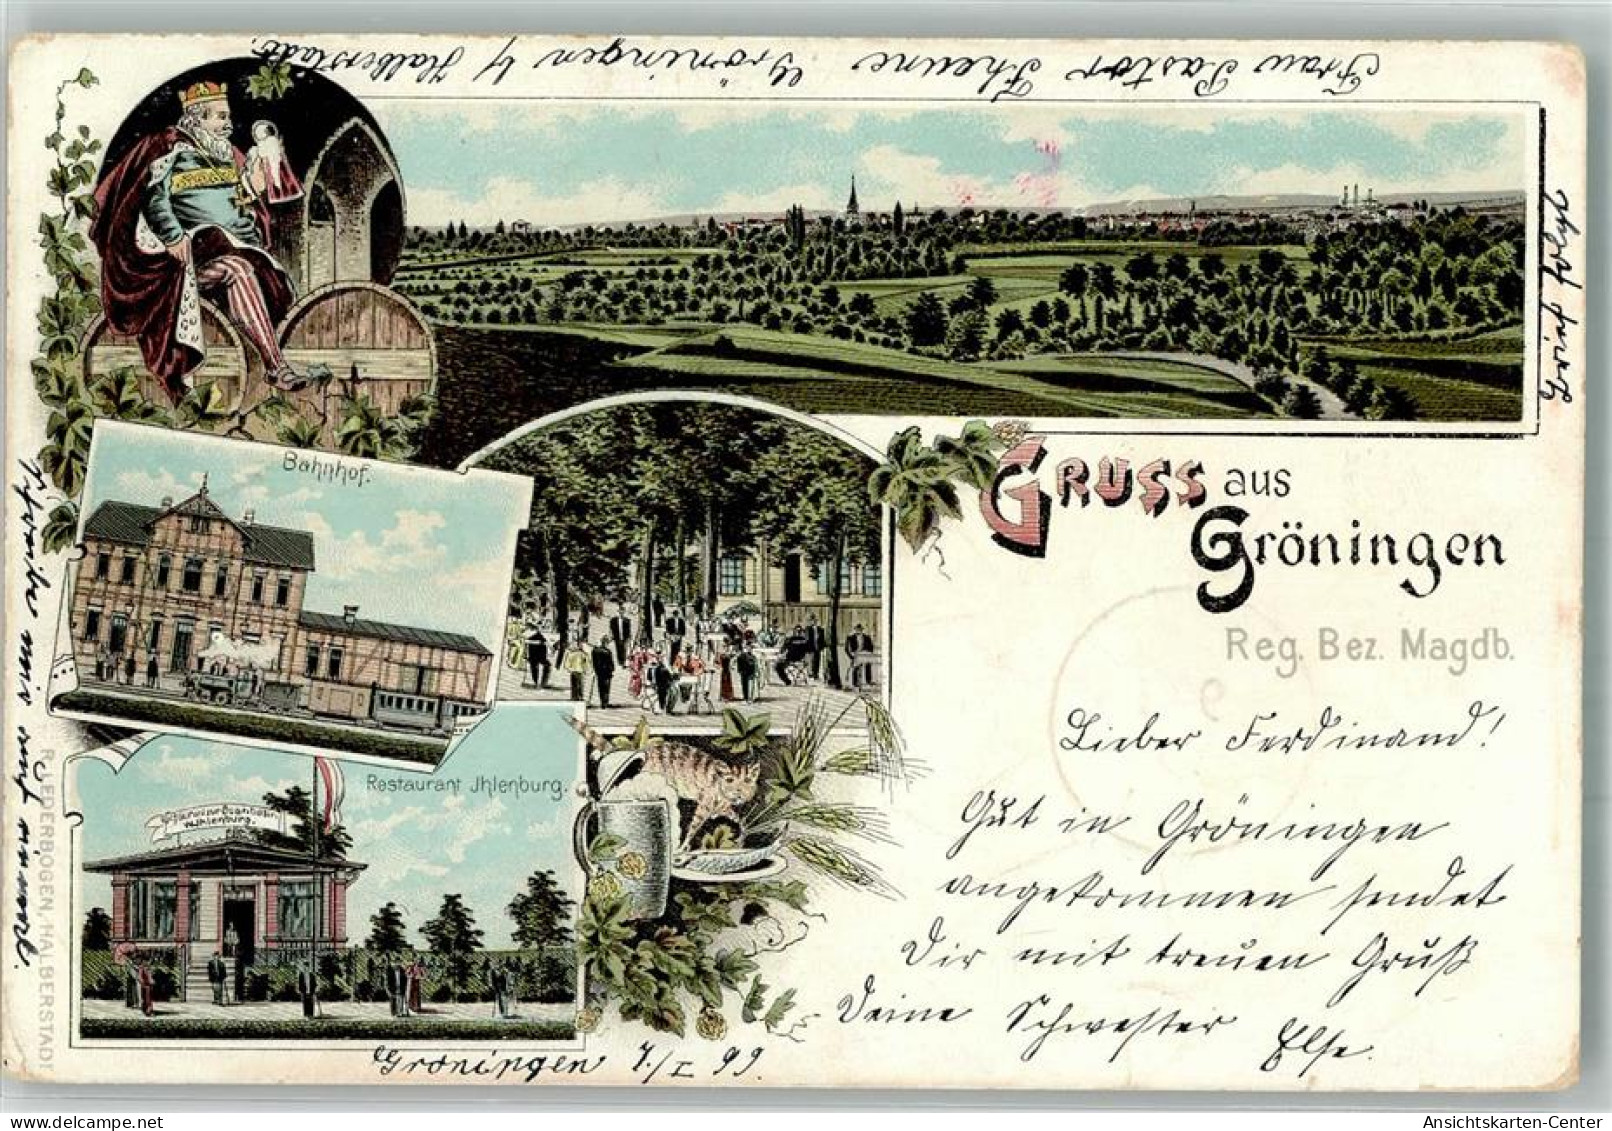 Frau Pastor Theune Gröningen b/ Halberstadt.
Bahnhof.
GRUSS aus
Gröningen
Reg. Bez. Magdb.
Restaurant Jhlenburg.
Jhlenburg.
Lieber Ferdinand!
Gut in Gröningen
angekommen sendet
Dir mit treuen Gruß
Deine Schwester
Else.
Gröningen 7./I 99.
Schreibe mir auch mal.
R. LEDERBOGEN, HALBERSTADT
Ansichtskarten-Center